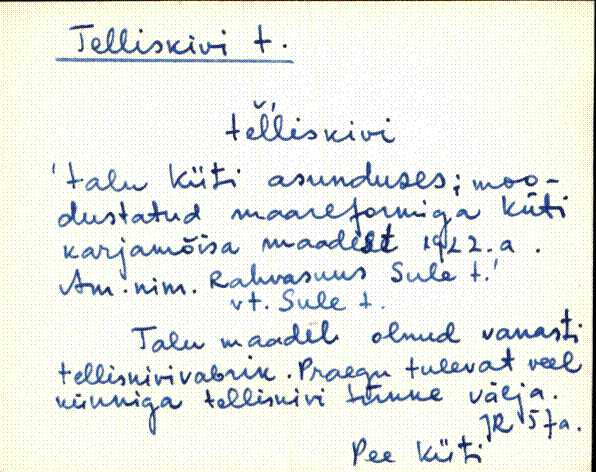 Telliskivi t.
tel̆liskivi
'talu Küti asunduses; moo-
dustatud maareformiga Küti
karjamõisa maadest 1922.a.
Am. nim. Rahvasuus Sule t.'
vt. Sule t.
Talu maadel olnud vanasti
telliskivivabrik. Praegu tulevat veel
künniga telliskivi
välja.
JR 57a.
Pee Küti